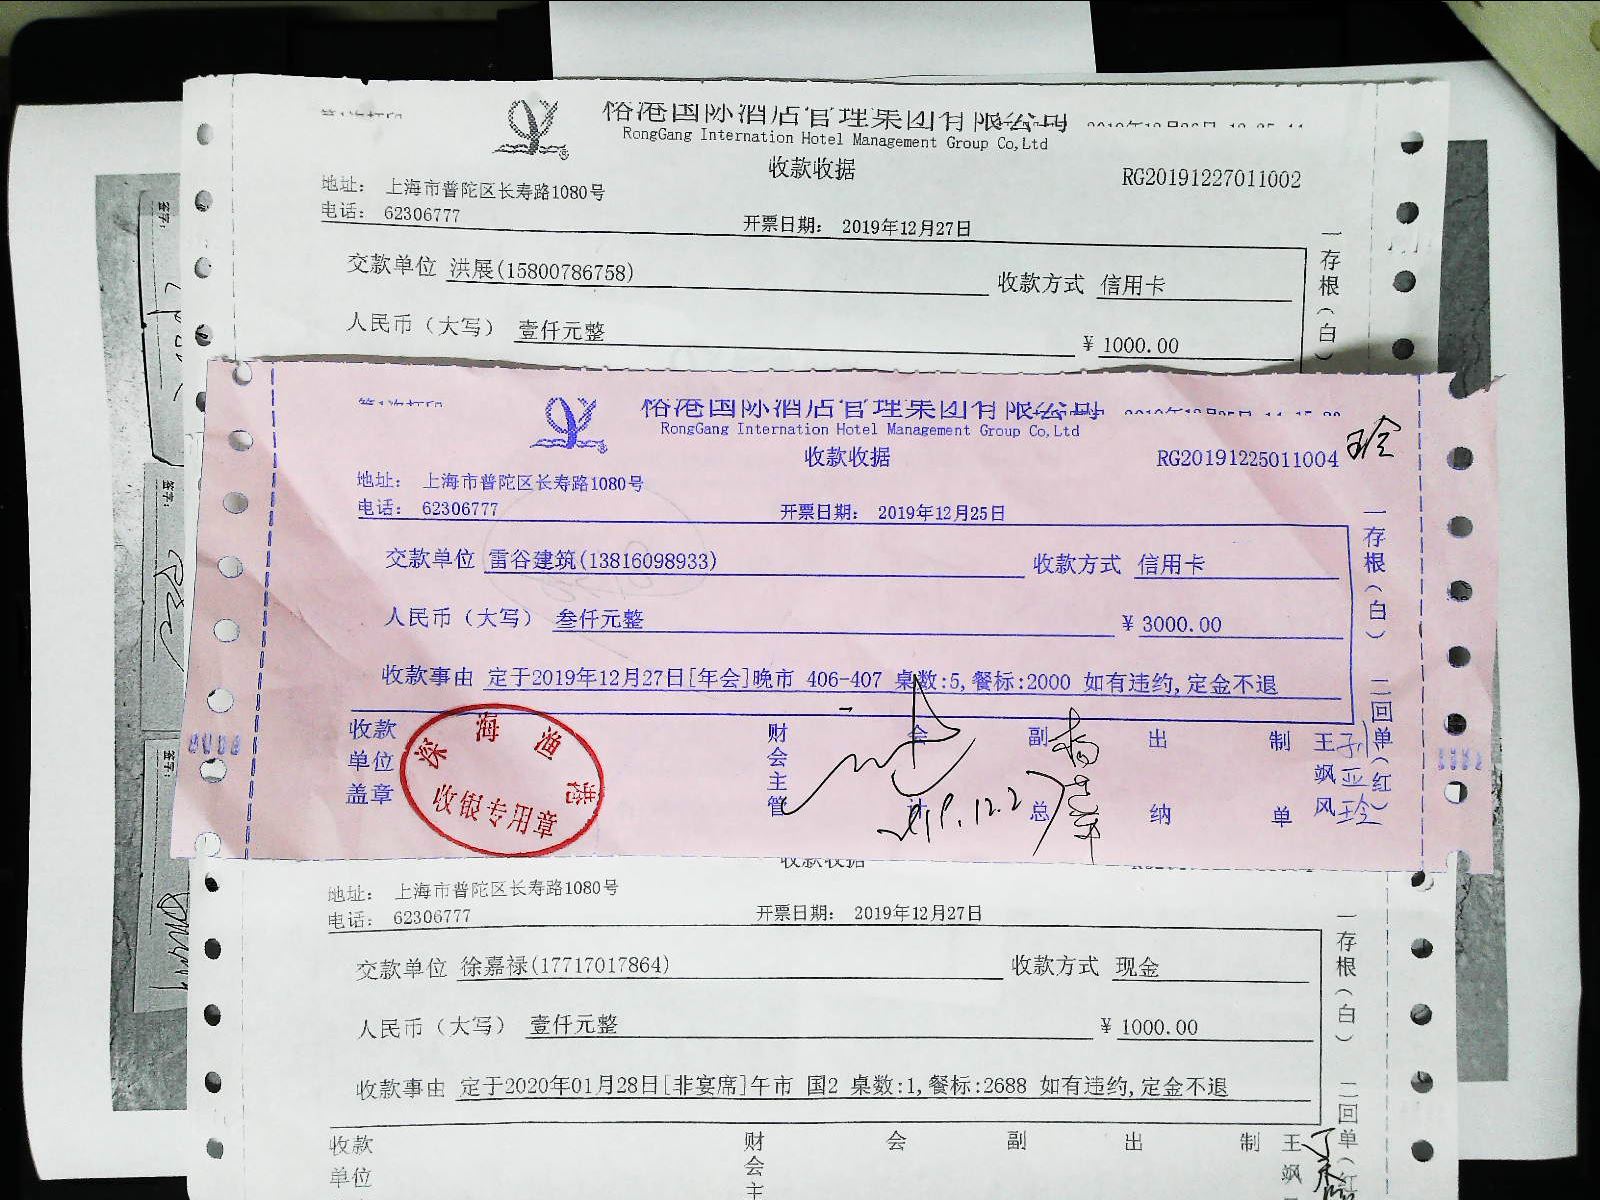 裕港国际酒店管理集团有限公司
RongGang Internation Hotel Management Group Co,Ltd
收款收据
RG20191227011002
地址： 上海市普陀区长寿路1080号
电话： 62306777
开票日期： 2019年12月27日
交款单位 洪展(15800786758) 收款方式 信用卡
人民币（大写） 壹仟元整 ¥ 1000.00
一存根（白）
第1次打印
裕港国际酒店管理集团有限公司
RongGang Internation Hotel Management Group Co,Ltd
收款收据
RG20191225011004
地址： 上海市普陀区长寿路1080号
电话： 62306777
开票日期： 2019年12月25日
交款单位 雷谷建筑(13816098933) 收款方式 信用卡
人民币（大写） 叁仟元整 ¥ 3000.00
收款事由 定于2019年12月27日[年会]晚市 406-407 桌数:5,餐标:2000 如有违约,定金不退
一存根（白） 二回单（红）
收款单位盖章 财会主管 会计 副总 出纳 制单 王飒风
深海渔
收银专用章
收款收据
地址： 上海市普陀区长寿路1080号
电话： 62306777
开票日期： 2019年12月27日
交款单位 徐嘉禄(17717017864) 收款方式 现金
人民币（大写） 壹仟元整 ¥ 1000.00
收款事由 定于2020年01月28日[非宴席]午市 国2 桌数:1,餐标:2688 如有违约,定金不退
一存根（白） 二回单（红
收款单位 财会主 会 副 出 制 王飒